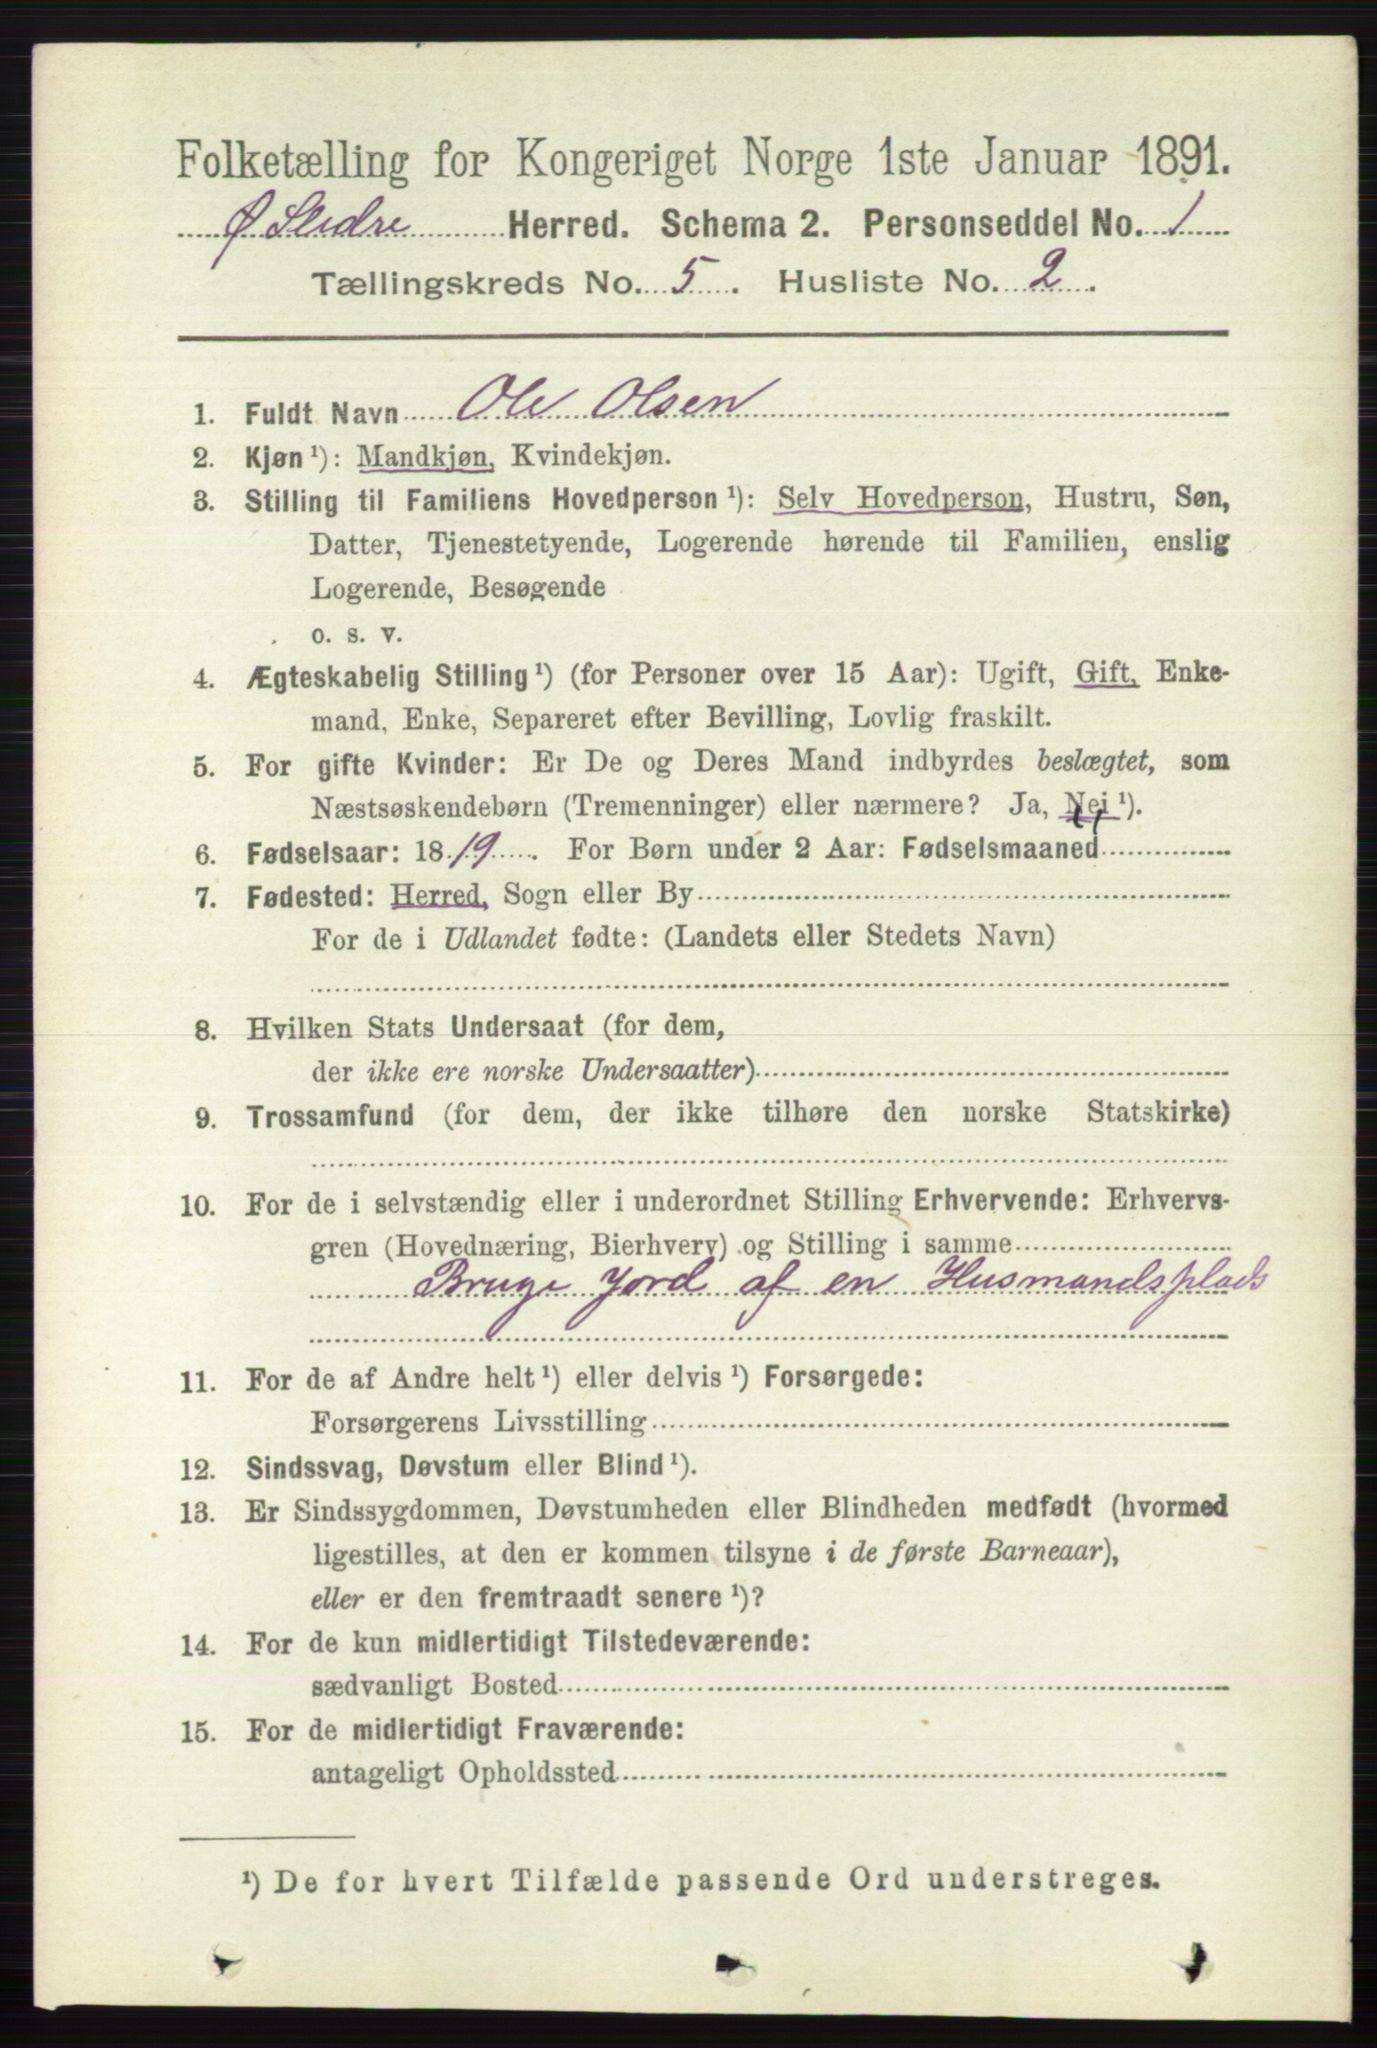 Folketælling for Kongeriget Norge 1ste Januar 1891.
Ø Slidre Herred. Schema 2. Personseddel No. 1
Tællingskreds No. 5. Husliste No. 2.
1. Fuldt Navn Ole Olsen
2. Kjøn ¹): Mandkjøn, Kvindekjøn.
3. Stilling til Familiens Hovedperson ¹): Selv Hovedperson, Hustru, Søn,
Datter, Tjenestetyende, Logerende hørende til Familien, enslig
Logerende, Besøgende
o. s. v.
4. Ægteskabelig Stilling ¹) (for Personer over 15 Aar): Ugift, Gift, Enke-
mand, Enke, Separeret efter Bevilling, Lovlig fraskilt.
5. For gifte Kvinder: Er De og Deres Mand indbyrdes beslægtet, som
Næstsøskendebørn (Tremenninger) eller nærmere? Ja, Nei ¹).
6. Fødselsaar: 1819. For Børn under 2 Aar: Fødselsmaaned
7. Fødested: Herred, Sogn eller By
For de i Udlandet fødte: (Landets eller Stedets Navn)
8. Hvilken Stats Undersaat (for dem,
der ikke ere norske Undersaatter)
9. Trossamfund (for dem, der ikke tilhøre den norske Statskirke)
10. For de i selvstændig eller i underordnet Stilling Erhvervende: Erhvervs-
gren (Hovednæring, Bierhverv) og Stilling i samme
Bruge Jord af en Husmandsplads
11. For de af Andre helt ¹) eller delvis ¹) Forsørgede:
Forsørgerens Livsstilling
12. Sindssvag, Døvstum eller Blind ¹).
13. Er Sindssygdommen, Døvstumheden eller Blindheden medfødt (hvormed
ligestilles, at den er kommen tilsyne i de første Barneaar),
eller er den fremtraadt senere ¹)?
14. For de kun midlertidigt Tilstedeværende:
sædvanligt Bosted
15. For de midlertidigt Fraværende:
antageligt Opholdssted
¹) De for hvert Tilfælde passende Ord understreges.